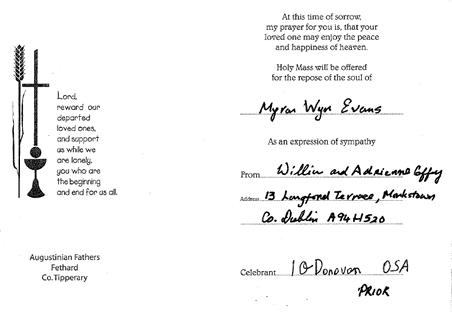 Lord,
reward our
departed
loved ones,
and support
us while we
are lonely,
you who are
the beginning
and end for us all.
Augustinian Fathers
Fethard
Co.Tipperary
At this time of sorrow,
my prayer for you is, that your
loved one may enjoy the peace
and happiness of heaven.
Holy Mass will be offered
for the repose of the soul of
Myron Wyn Evans
As an expression of sympathy
From Willie and Adrienne
Address 13 Longford Terrace, Monkstown
Co. Dublin A94 H520
Celebrant I O'Donovan OSA
PRIOR